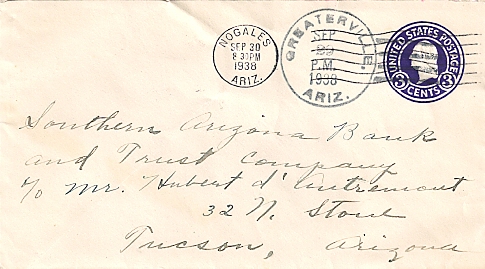 NOGALES
SEP 30
8 30 PM
1938
ARIZ.
GREATERVILLE.
SEP
29
P.M.
1938
ARIZ.
UNITED STATES POSTAGE
3 CENTS 3
Southern Arizona Bank
and Trust Company
c/o Mr. Hubert d'Autremont
32 N. Stone
Tucson, Arizona